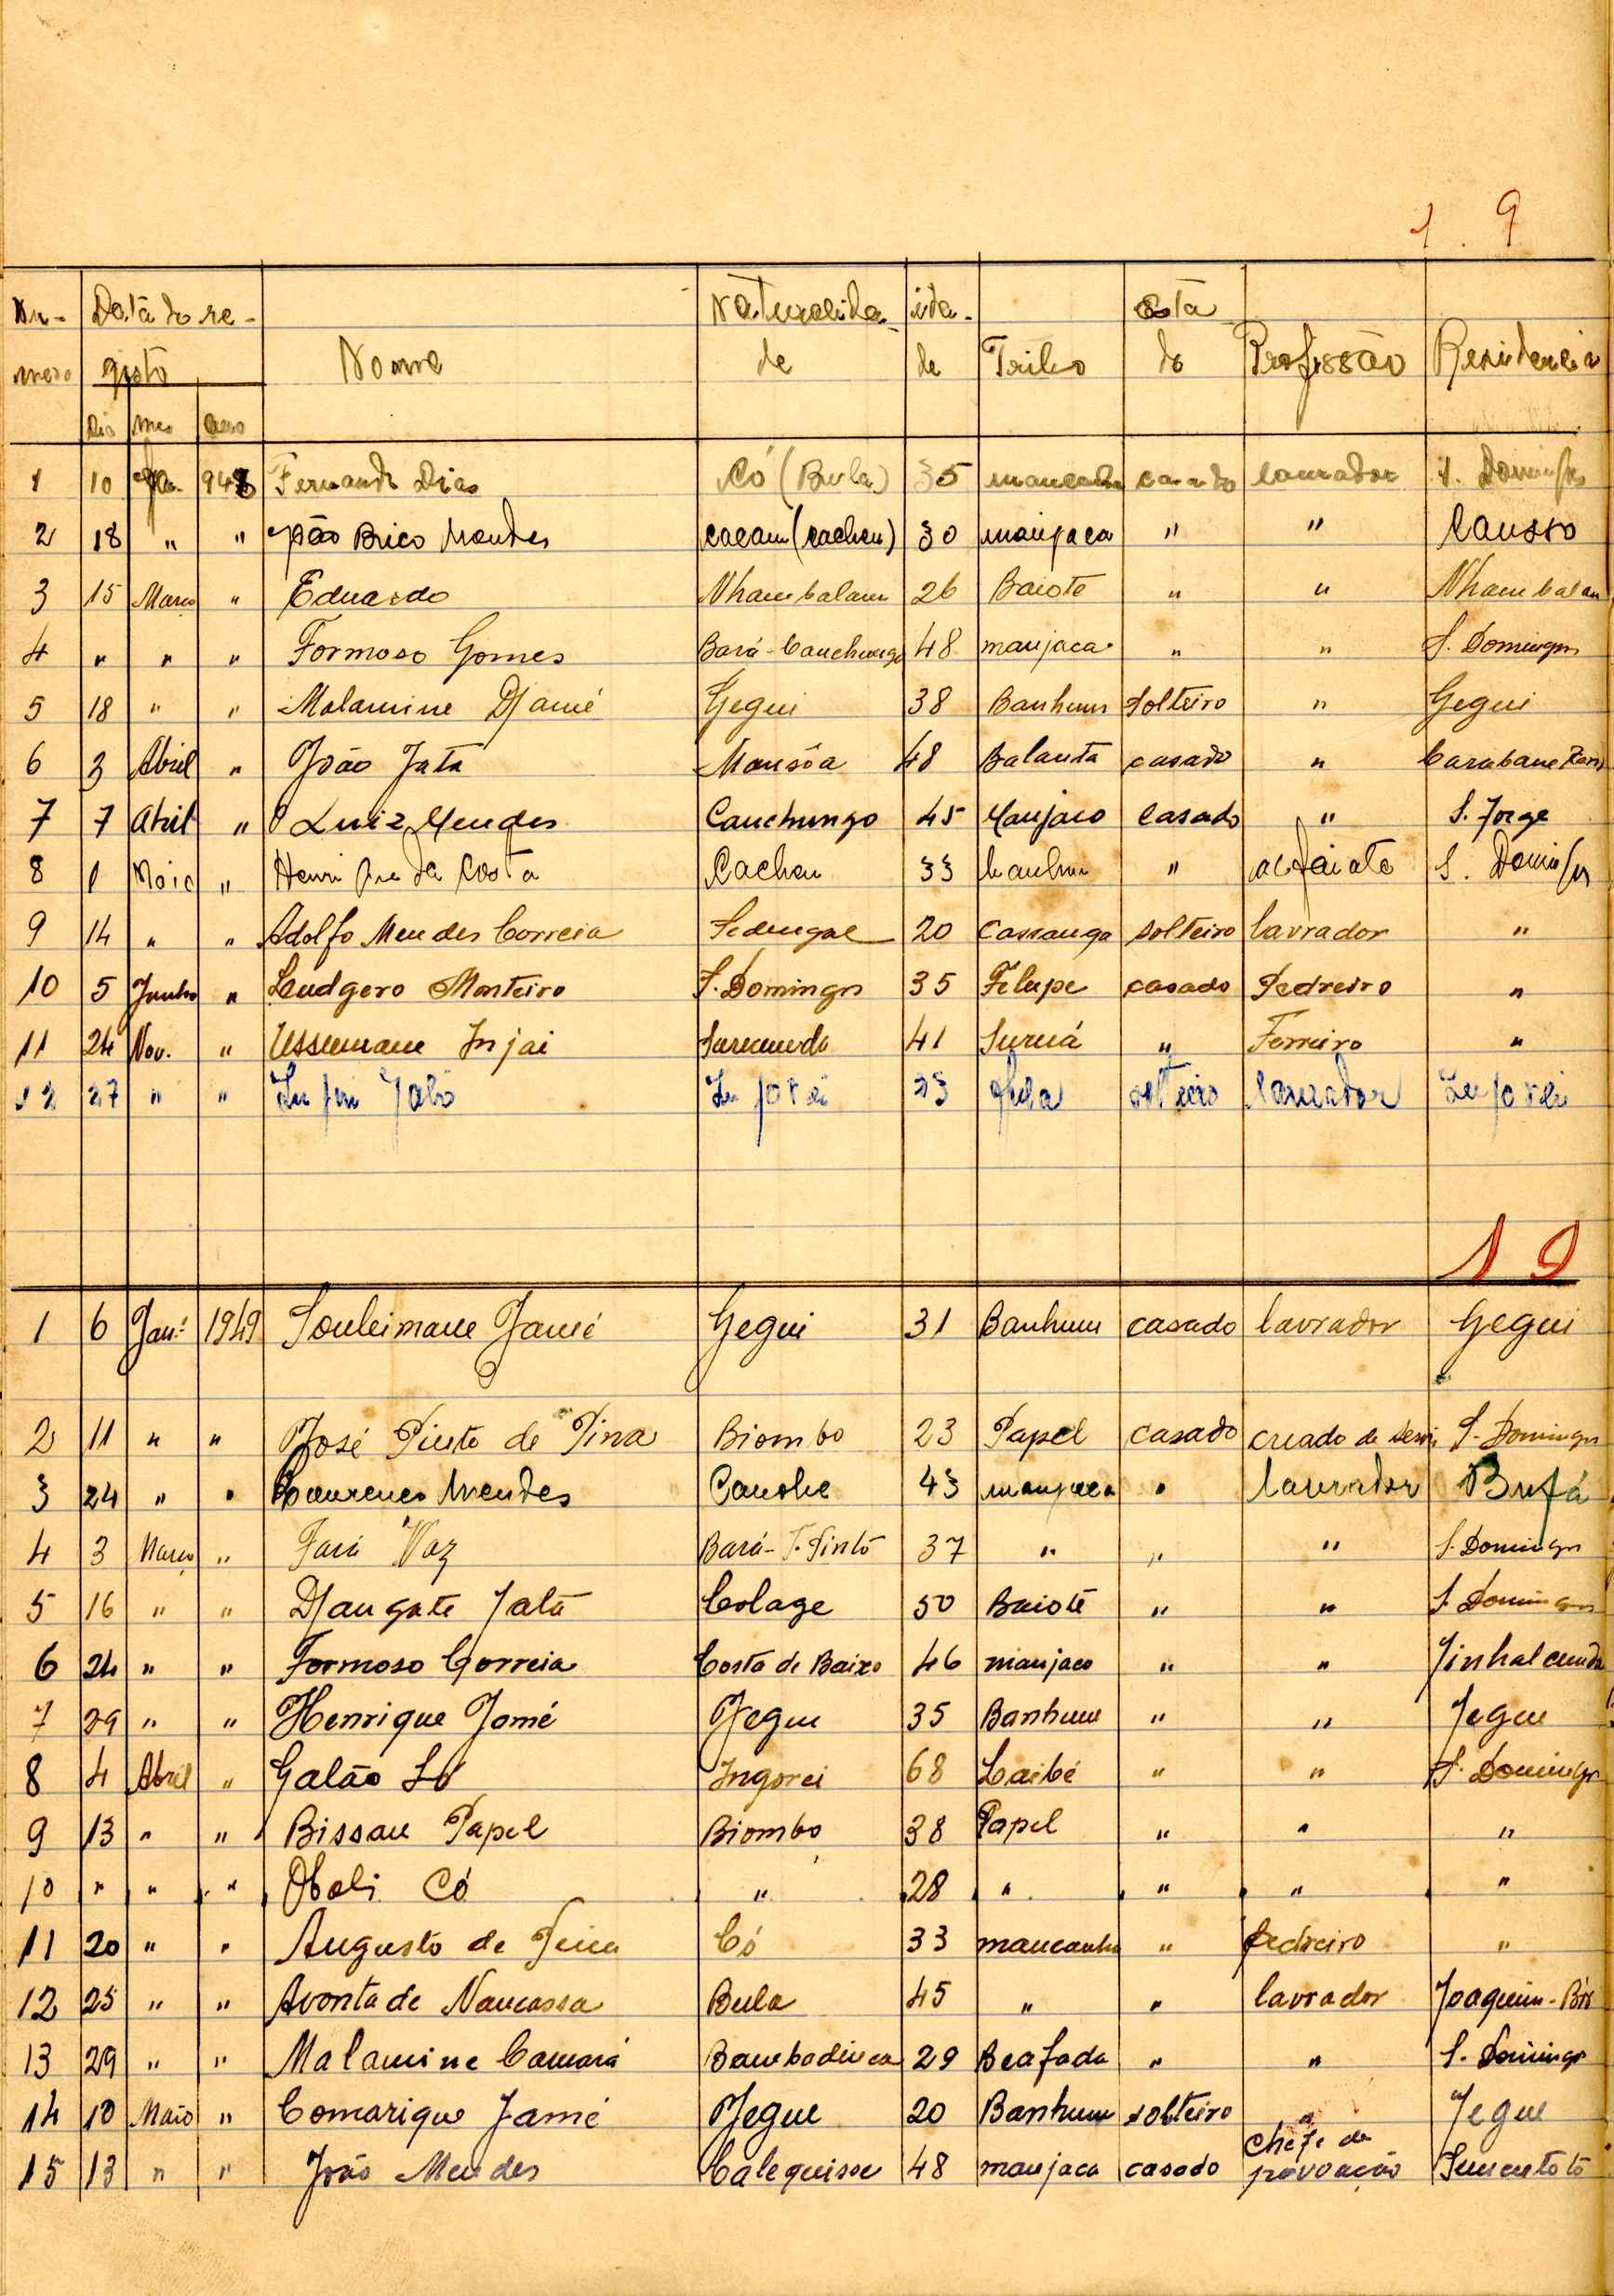 1 9
Nu- Data do re- Naturalida- ida- esta
mero gisto Nome de de Tribo do Profissão Residencia
Dia mes ano
1 10 Jan. 948 Fernando Dias Có (Bula) 35 mancanha casado lavrador S. Domingos
2 18 " " João Brico Mendes cacau (cacheu) 30 manjaca " " Causso
3 15 Março " Eduardo Nhambalam 26 Baiote " " Nhambalan
4 " " " Formoso Gomes Bará-Canchungo 48 manjaca " " S. Domingos
5 18 " " Malamine Djamé Gegui 38 Banhum solteiro " Gegui
6 3 Abril " João Jata Mansôa 48 Balanta casado " Carabane
7 7 Abril " Luiz Mendes Canchungo 45 Manjaco Casado " S. Jorge
8 1 Maio " Henri da Costa Cacheu 33 banhun " alfaiate S. Domingos
9 14 " " Adolfo Mendes Correia Sedengal 20 Cassanga solteiro lavrador "
10 5 Junho " Leudgero Monteiro S. Domingos 35 Felupe casado Pedreiro "
11 24 Nov. " Ussumane Injai 41 Suruá " Ferreiro "
12 27 " " 23 fula solteiro lavrador
19
1 6 Jan: 1949 Souleimane Jamé Gegui 31 Banhum casado lavrador Gegui
2 11 " " José Pinto de Pina Biombo 23 Papel casado creado de servi S. Domingos
3 24 " " Lourenço Mendes Canobe 43 manjaca " lavrador Bufá
4 3 Março " Fará Vaz Bará-T. Pinto 37 " " " S. Domingos
5 16 " " Djangate Jatá Colage 50 Baiote " " S. Domingos
6 24 " " Formoso Correia Costa de Baixo 46 manjaco " " Jinhalcunda
7 29 " " Henrique Jamé Jegue 35 Banhum " " Jegue
8 4 Abril " Galão Só Ingorei 68 Saibé " " S. Domingos
9 13 " " Bissau Papel Biombo 38 Papel " " "
10 " " " Obali Có " 28 " " " "
11 20 " " Augusto de Pina Có 33 mancanha " pedreiro "
12 25 " " Avontade Nancassa Bula 45 " " lavrador Joaquim-Bór
13 29 " " Malamine Camará Bambadinca 29 Beafada " " S. Domingos
14 10 Maio " Comarique Jamé Jegue 20 Banhum solteiro " Jegue
15 13 " " João Mendes Calequisse 48 manjaca casado chefe de povoação